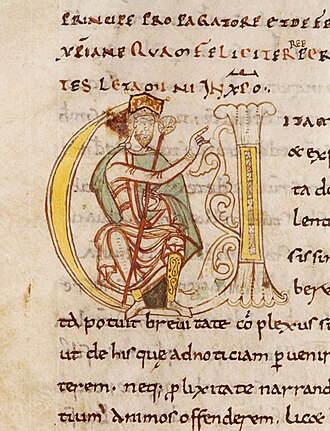 PRINCIPE PROPAGATORE ET DEFE
XPIANE QUAM FELICITER REP
TES LETAQUNI IN XPO.
ITA
& ex
ta do
lent
sissin
ber
ta potuit breuitate cōplexus s
ut de his que adnoticiam puenir
terem. neq; plixitate narrand
tium animos offenderem. licet